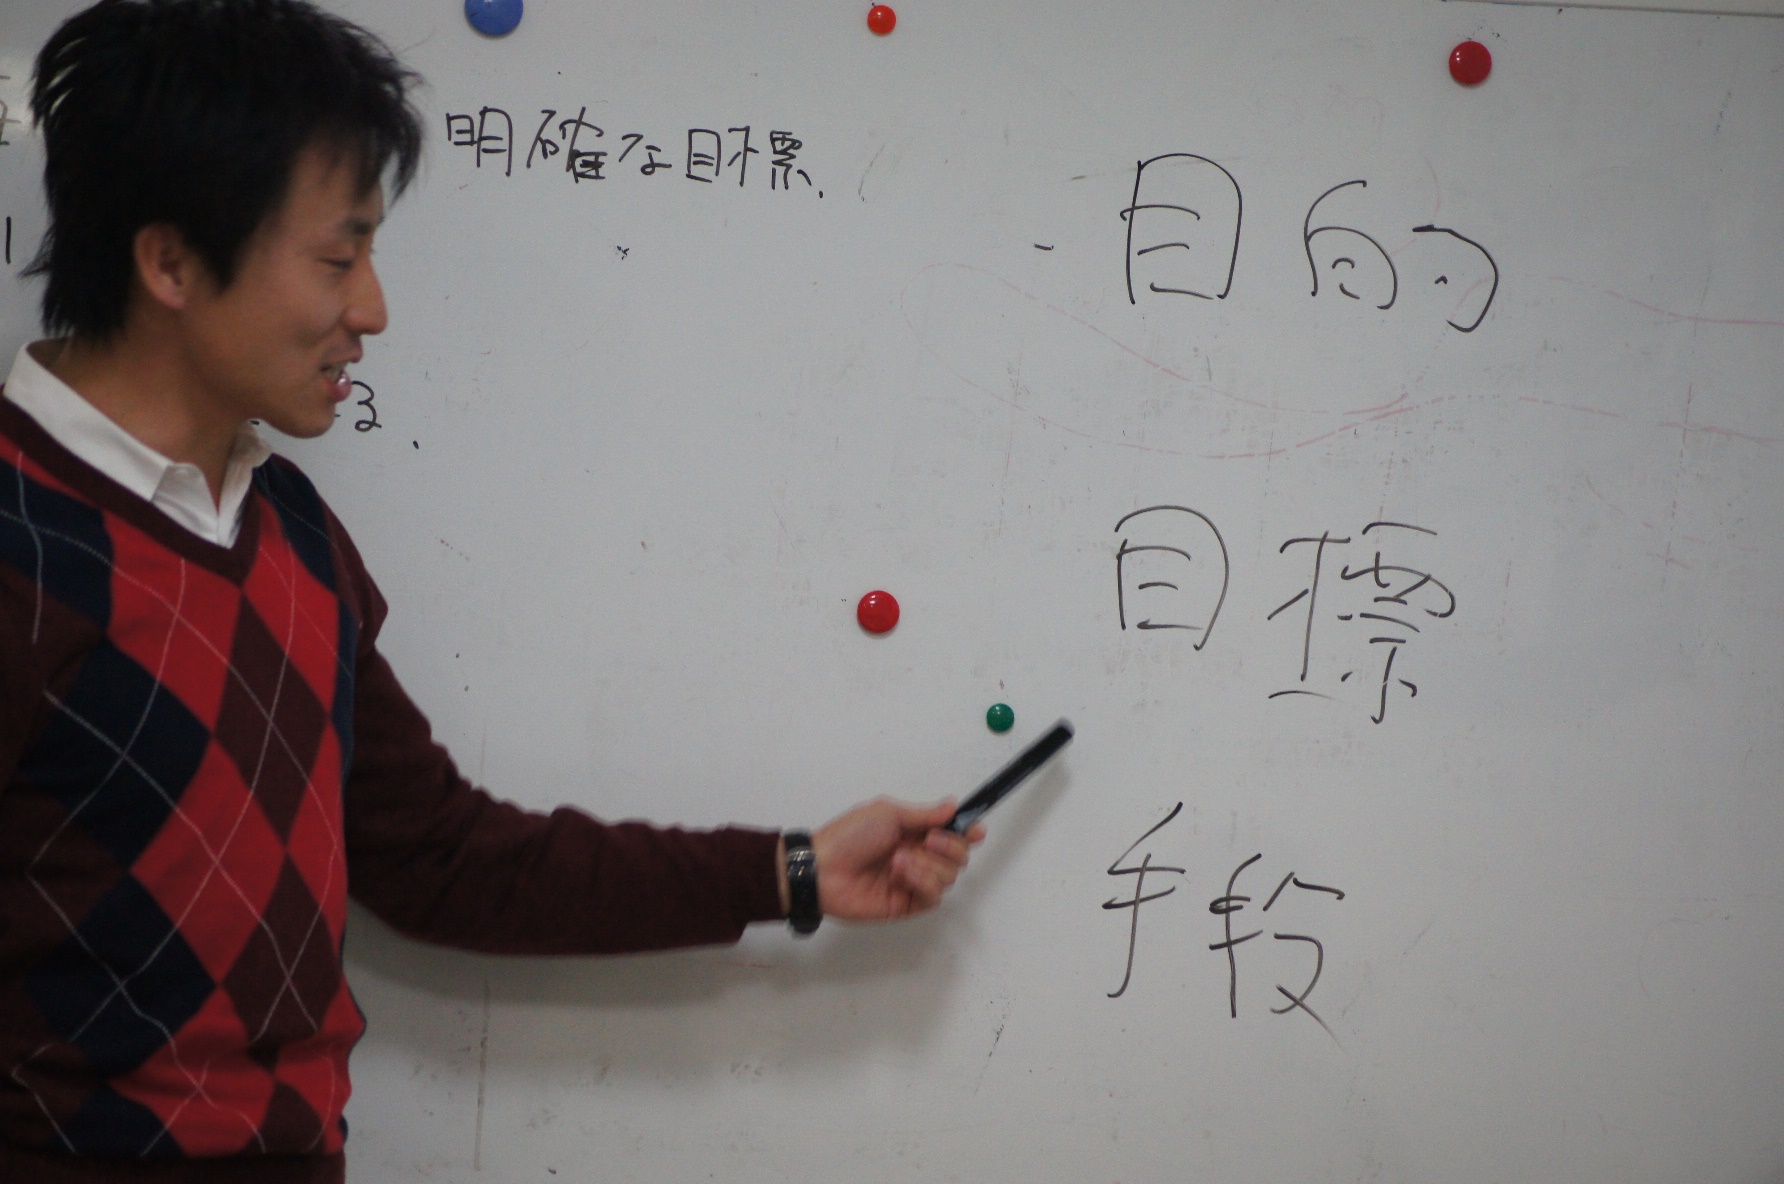 明確な目標.
目的
目標
手段